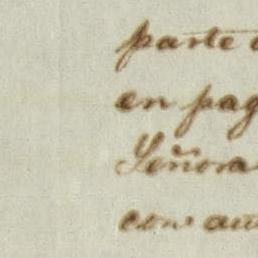 parte
en pag
Señora
con au